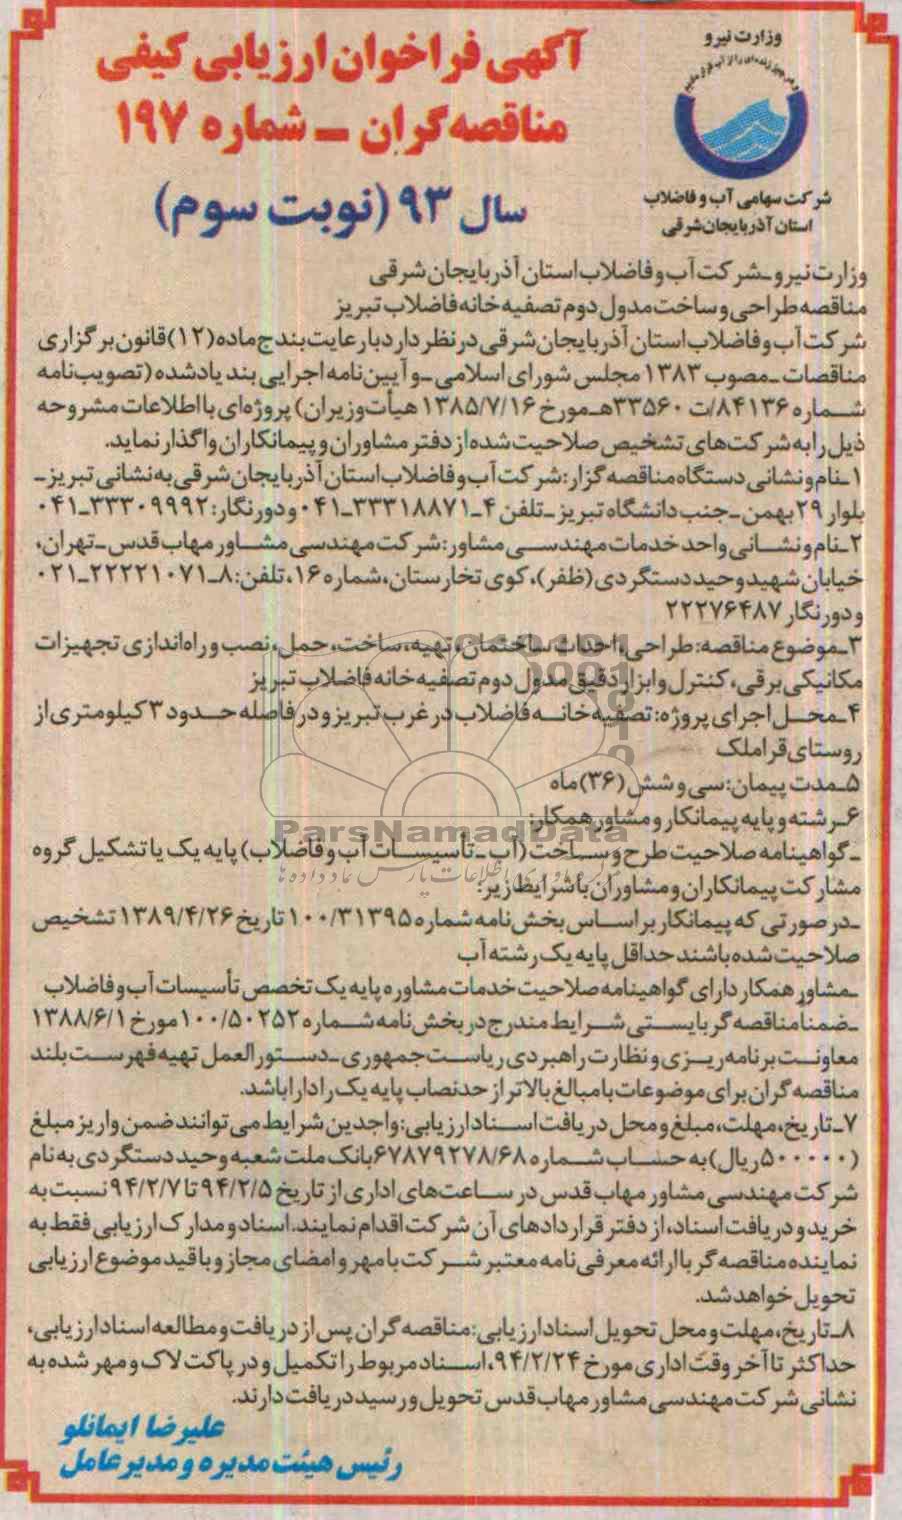 وزارت نیرو
شرکت سهامی آب و فاضلاب
استان آذربایجان شرقی
آگهی فراخوان ارزیابی کیفی
مناقصه گران ـ شماره ۱۹۷
سال ۹۳ (نوبت سوم)
وزارت نیرو ـ شرکت آب و فاضلاب استان آذربایجان شرقی
مناقصه طراحی و ساخت مدول دوم تصفیه خانه فاضلاب تبریز
شرکت آب و فاضلاب استان آذربایجان شرقی در نظر دارد با رعایت بند ج ماده (۱۲) قانون برگزاری
مناقصات ـ مصوب ۱۳۸۳ مجلس شورای اسلامی ـ و آیین نامه اجرایی بند یاد شده (تصویب نامه
شماره ۸۴۱۳۶/ت ۳۳۵۶۰هـ مورخ ۱۳۸۵/۷/۱۶ هیأت وزیران) پروژه ای با اطلاعات مشروحه
ذیل را به شرکت های تشخیص صلاحیت شده از دفتر مشاوران و پیمانکاران واگذار نماید.
۱ـ نام و نشانی دستگاه مناقصه گزار: شرکت آب و فاضلاب استان آذربایجان شرقی به نشانی تبریز ـ
بلوار ۲۹ بهمن ـ جنب دانشگاه تبریز ـ تلفن ۴ـ۳۳۳۱۸۸۷۱ـ۰۴۱ و دورنگار: ۳۳۳۰۹۹۹۲ـ۰۴۱
۲ـ نام و نشانی واحد خدمات مهندسی مشاور: شرکت مهندسی مشاور مهاب قدس ـ تهران،
خیابان شهید وحید دستگردی (ظفر)، کوی تخارستان، شماره ۱۶، تلفن: ۸ـ۲۲۲۲۱۰۷۱ـ۰۲۱
و دورنگار ۲۲۲۷۶۴۸۷
۳ـ موضوع مناقصه: طراحی، احداث ساختمان، تهیه، ساخت، حمل، نصب و راه اندازی تجهیزات
مکانیکی برقی، کنترل و ابزار دقیق مدول دوم تصفیه خانه فاضلاب تبریز
۴ـ محل اجرای پروژه: تصفیه خانه فاضلاب در غرب تبریز و در فاصله حدود ۳ کیلومتری از
روستای قراملک
۵ـ مدت پیمان: سی و شش (۳۶) ماه
۶ـ رشته و پایه پیمانکار و مشاور همکار:
ParsNamadData
ـ گواهینامه صلاحیت طرح و ساخت (آب ـ تأسیسات آب و فاضلاب) پایه یک یا تشکیل گروه
مشارکت پیمانکاران و مشاوران با شرایط زیر:
ـ در صورتی که پیمانکار بر اساس بخش نامه شماره ۱۰۰/۳۱۳۹۵ تاریخ ۱۳۸۹/۴/۲۶ تشخیص
صلاحیت شده باشند حداقل پایه یک رشته آب
ـ مشاور همکار دارای گواهینامه صلاحیت خدمات مشاوره پایه یک تخصص تأسیسات آب و فاضلاب
ـ ضمناً مناقصه گر بایستی شرایط مندرج در بخش نامه شماره ۱۰۰/۵۰۲۵۲ مورخ ۱۳۸۸/۶/۱
معاونت برنامه ریزی و نظارت راهبردی ریاست جمهوری ـ دستورالعمل تهیه فهرست بلند
مناقصه گران برای موضوعات با مبالغ بالاتر از حد نصاب پایه یک را دارا باشد.
۷ـ تاریخ، مهلت، مبلغ و محل دریافت اسناد ارزیابی: واجدین شرایط می توانند ضمن واریز مبلغ
(۵۰۰۰۰۰ ریال) به حساب شماره ۶۷۸۷۹۲۷۸/۶۸ بانک ملت شعبه وحید دستگردی به نام
شرکت مهندسی مشاور مهاب قدس در ساعت های اداری از تاریخ ۹۴/۲/۵ تا ۹۴/۲/۷ نسبت به
خرید و دریافت اسناد، از دفتر قراردادهای آن شرکت اقدام نمایند. اسناد و مدارک ارزیابی فقط به
نماینده مناقصه گر با ارائه معرفی نامه معتبر شرکت با مهر و امضای مجاز و با قید موضوع ارزیابی
تحویل خواهد شد.
۸ـ تاریخ، مهلت و محل تحویل اسناد ارزیابی: مناقصه گران پس از دریافت و مطالعه اسناد ارزیابی،
حداکثر تا آخر وقت اداری مورخ ۹۴/۲/۲۴، اسناد مربوط را تکمیل و در پاکت لاک و مهر شده به
نشانی شرکت مهندسی مشاور مهاب قدس تحویل و رسید دریافت دارند.
علیرضا ایمانلو
رئیس هیئت مدیره و مدیر عامل